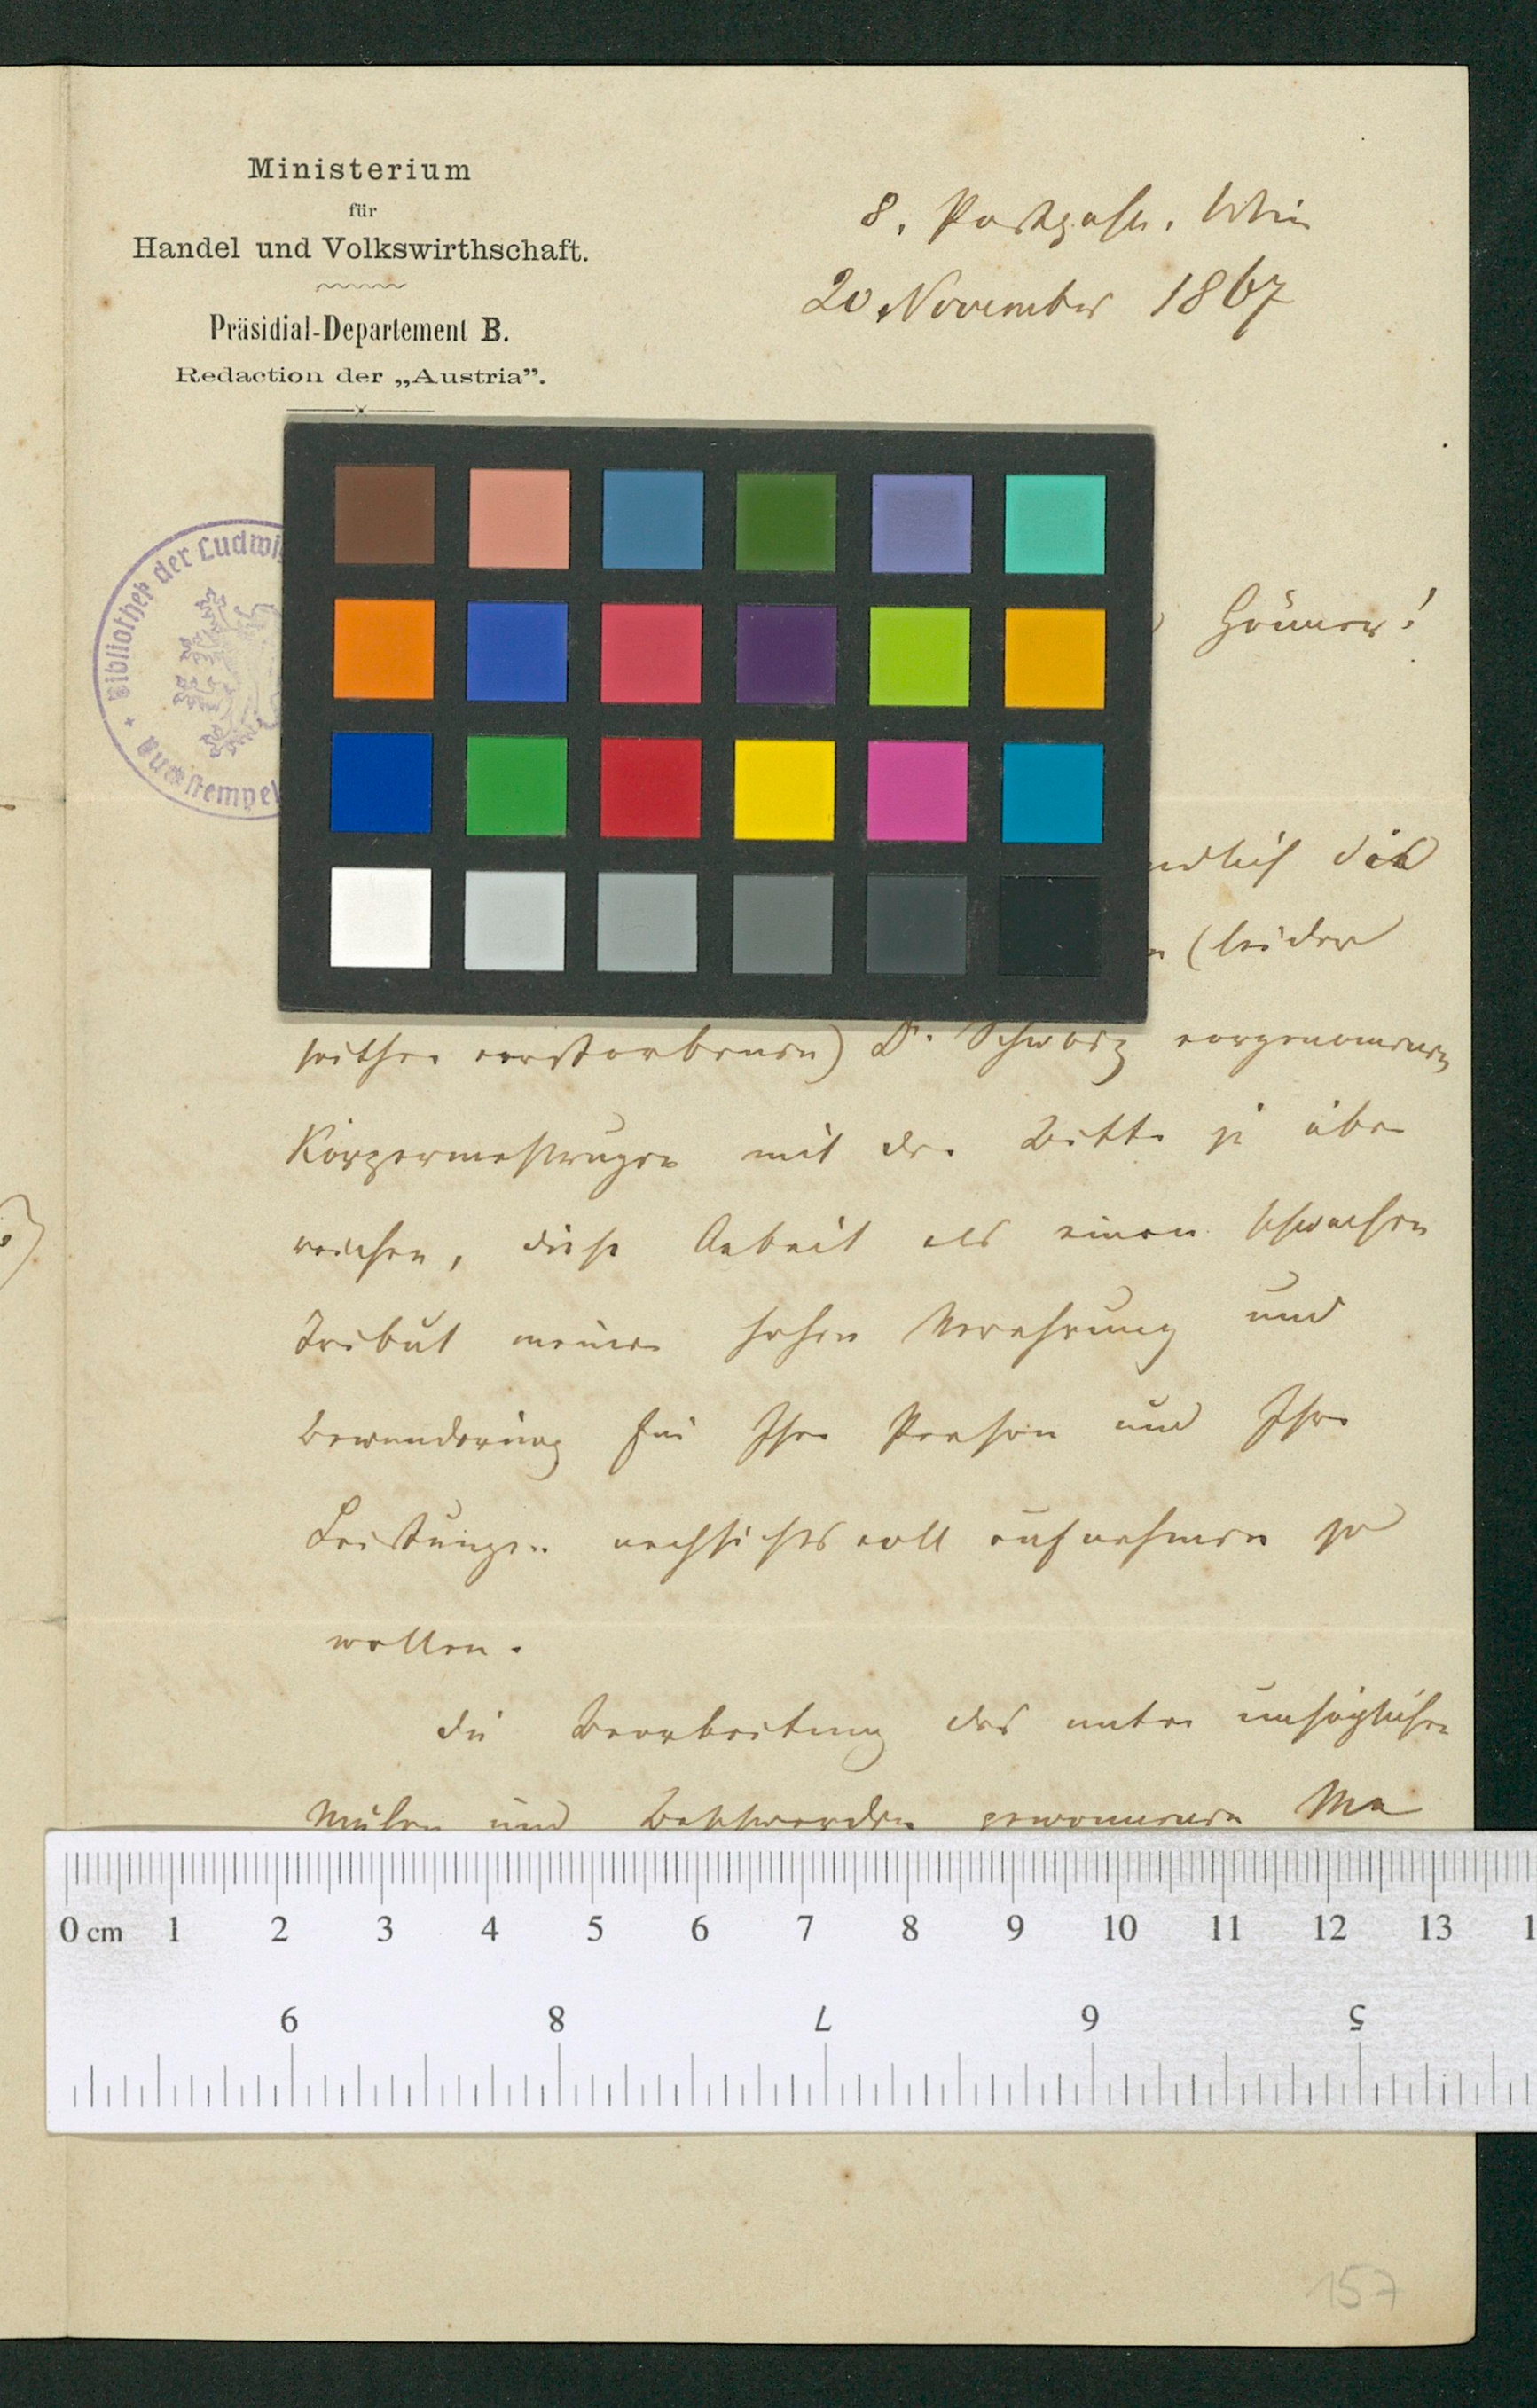 Ministerium
für
Handel und Volkswirthschaft.
Präsidial-Departement B.
Redaction der „Austria”.
8. Postgasse. Wien
20 November 1867
Bibliothek der Ludwi
Gönner!
ndlich die
(leider
seither verstorbenen) Dr. Schwarz vorgenommenen
Körpermessungen mit der Bitte zu über
reichen, diese Arbeit als einen schwachen
Tribut meiner hohen Verehrung und
Bewunderung für Ihre Person und Ihre
Leistungen nachsichtsvoll aufnehmen zu
wollen.
Die Bearbeitung des unter unsäglichen
Mühen und Beschwerden gewonnenen Ma
0 cm 1 2 3 4 5 6 7 8 9 10 11 12 13 1
9 8 7 6 5
157